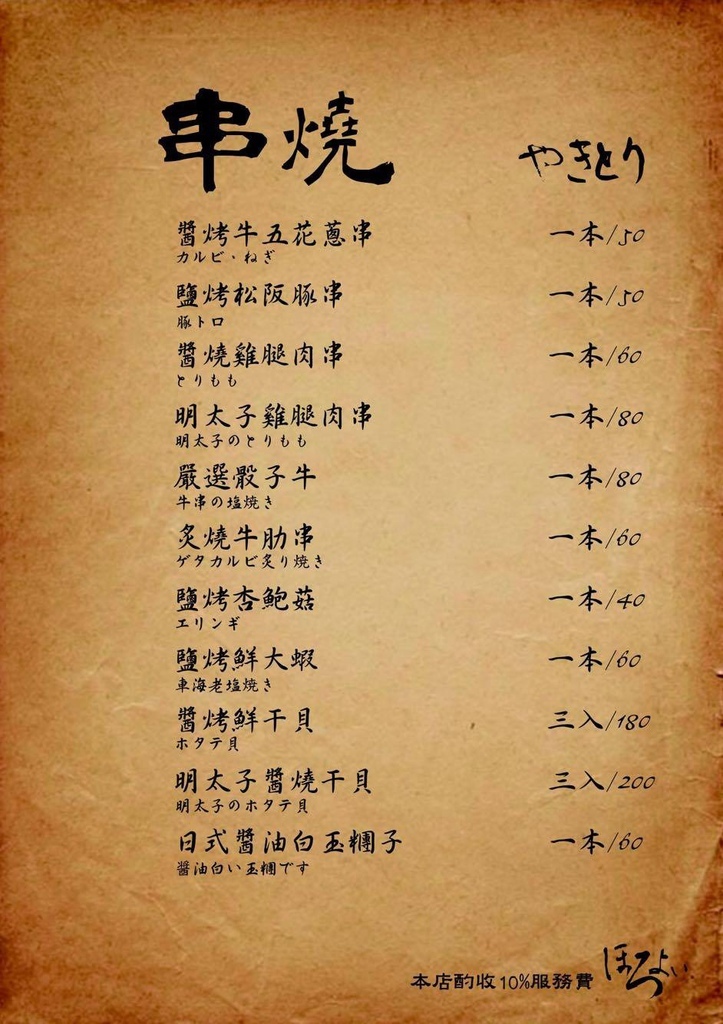 串燒 やきとり
醬烤牛五花蔥串 一本/50
カルビ・ねぎ
鹽烤松阪豚串 一本/50
豚トロ
醬燒雞腿肉串 一本/60
とりもも
明太子雞腿肉串 一本/80
明太子のとりもも
嚴選骰子牛 一本/80
牛串の塩焼き
炙燒牛肋串 一本/60
ゲタカルビ炙り焼き
鹽烤杏鮑菇 一本/40
エリンギ
鹽烤鮮大蝦 一本/60
車海老塩焼き
醬烤鮮干貝 三入/180
ホタテ貝
明太子醬燒干貝 三入/200
明太子のホタテ貝
日式醬油白玉糰子 一本/60
醬油白い玉糰です
本店酌收10%服務費 ほろよい